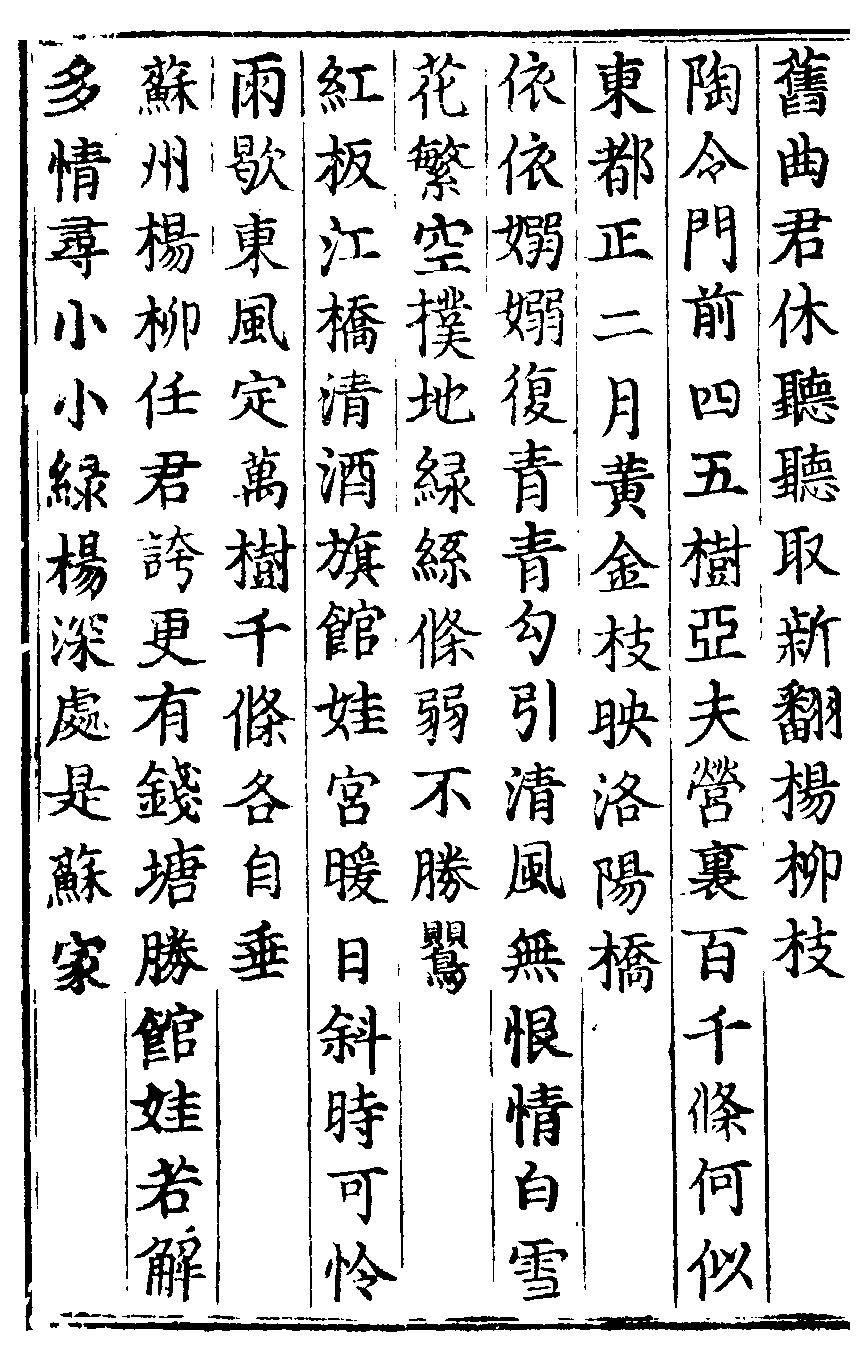 舊曲君休聽聽取新翻楊柳枝
陶令門前四五樹亞夫營裏百千條何似
東都正二月黃金枝映洛陽橋
依依嫋嫋復青青勾引清風無恨情白雪
花繁空撲地緑絲條弱不勝鸎
紅板江橋清酒旗館娃宮暖日斜時可怜
雨歇東風定萬樹千條各自垂
蘇州楊柳任君誇更有錢塘勝館娃若解
多情尋小小緑楊深處是蘇家